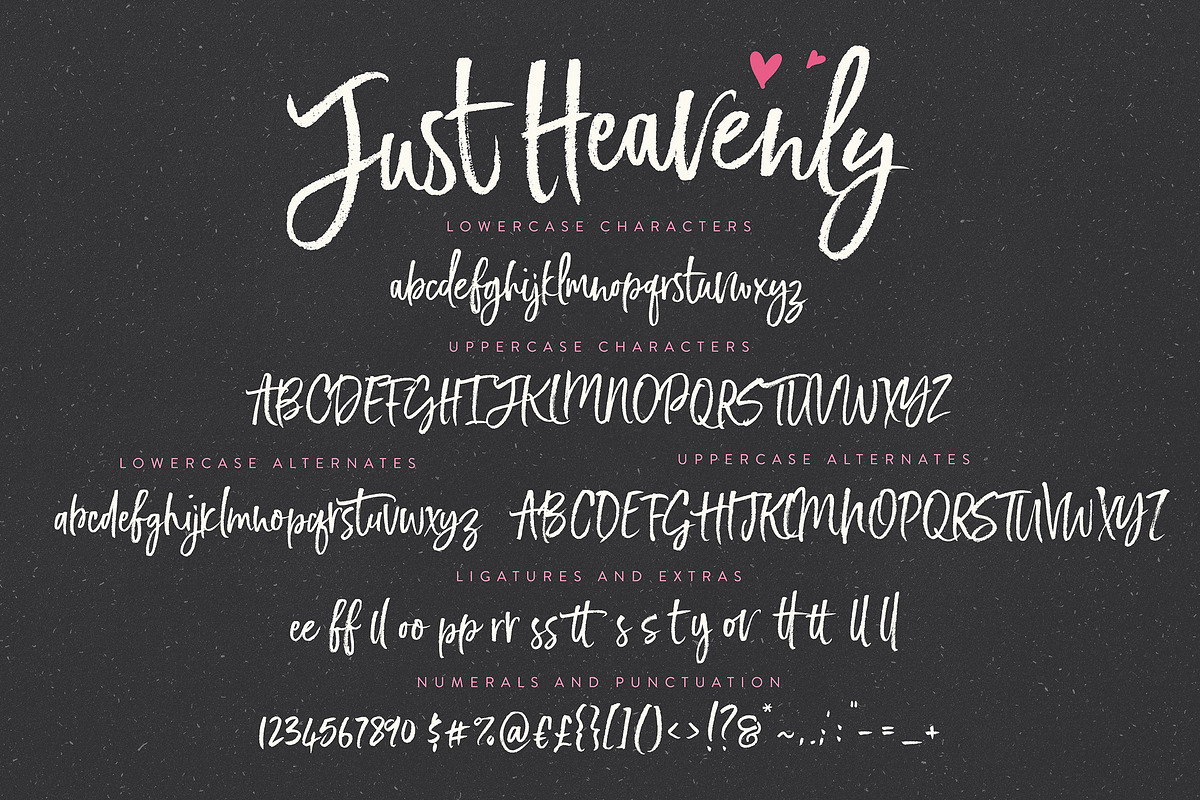 Just Heavenly
LOWERCASE CHARACTERS
abcdefghijklmnopqrstuvwxyz
UPPERCASE CHARACTERS
ABCDEFGHIJKLMNOPQRSTUVWXYZ
LOWERCASE ALTERNATES
abcdefghijklmnopqrstuvwxyz
UPPERCASE ALTERNATES
ABCDEFGHIJKLMNOPQRSTUVWXYZ
LIGATURES AND EXTRAS
ee ff ll oo pp rr ss tt s s t y ov tt tt ll ll
NUMERALS AND PUNCTUATION
1234567890 $#%@€£{}[]()<>!?&*~,.;:"-=_+